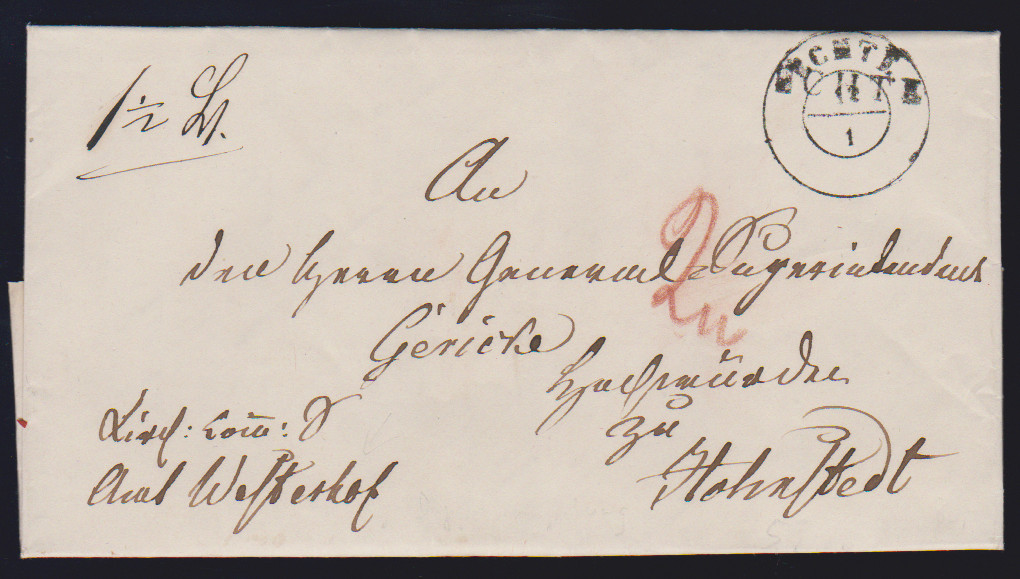 1½ Lt.
1
An
den Herrn General-Superintendent
Gericke
Hochwürden
zu
Hohnstedt
Kirch: Comm: S
Amt Westerhof